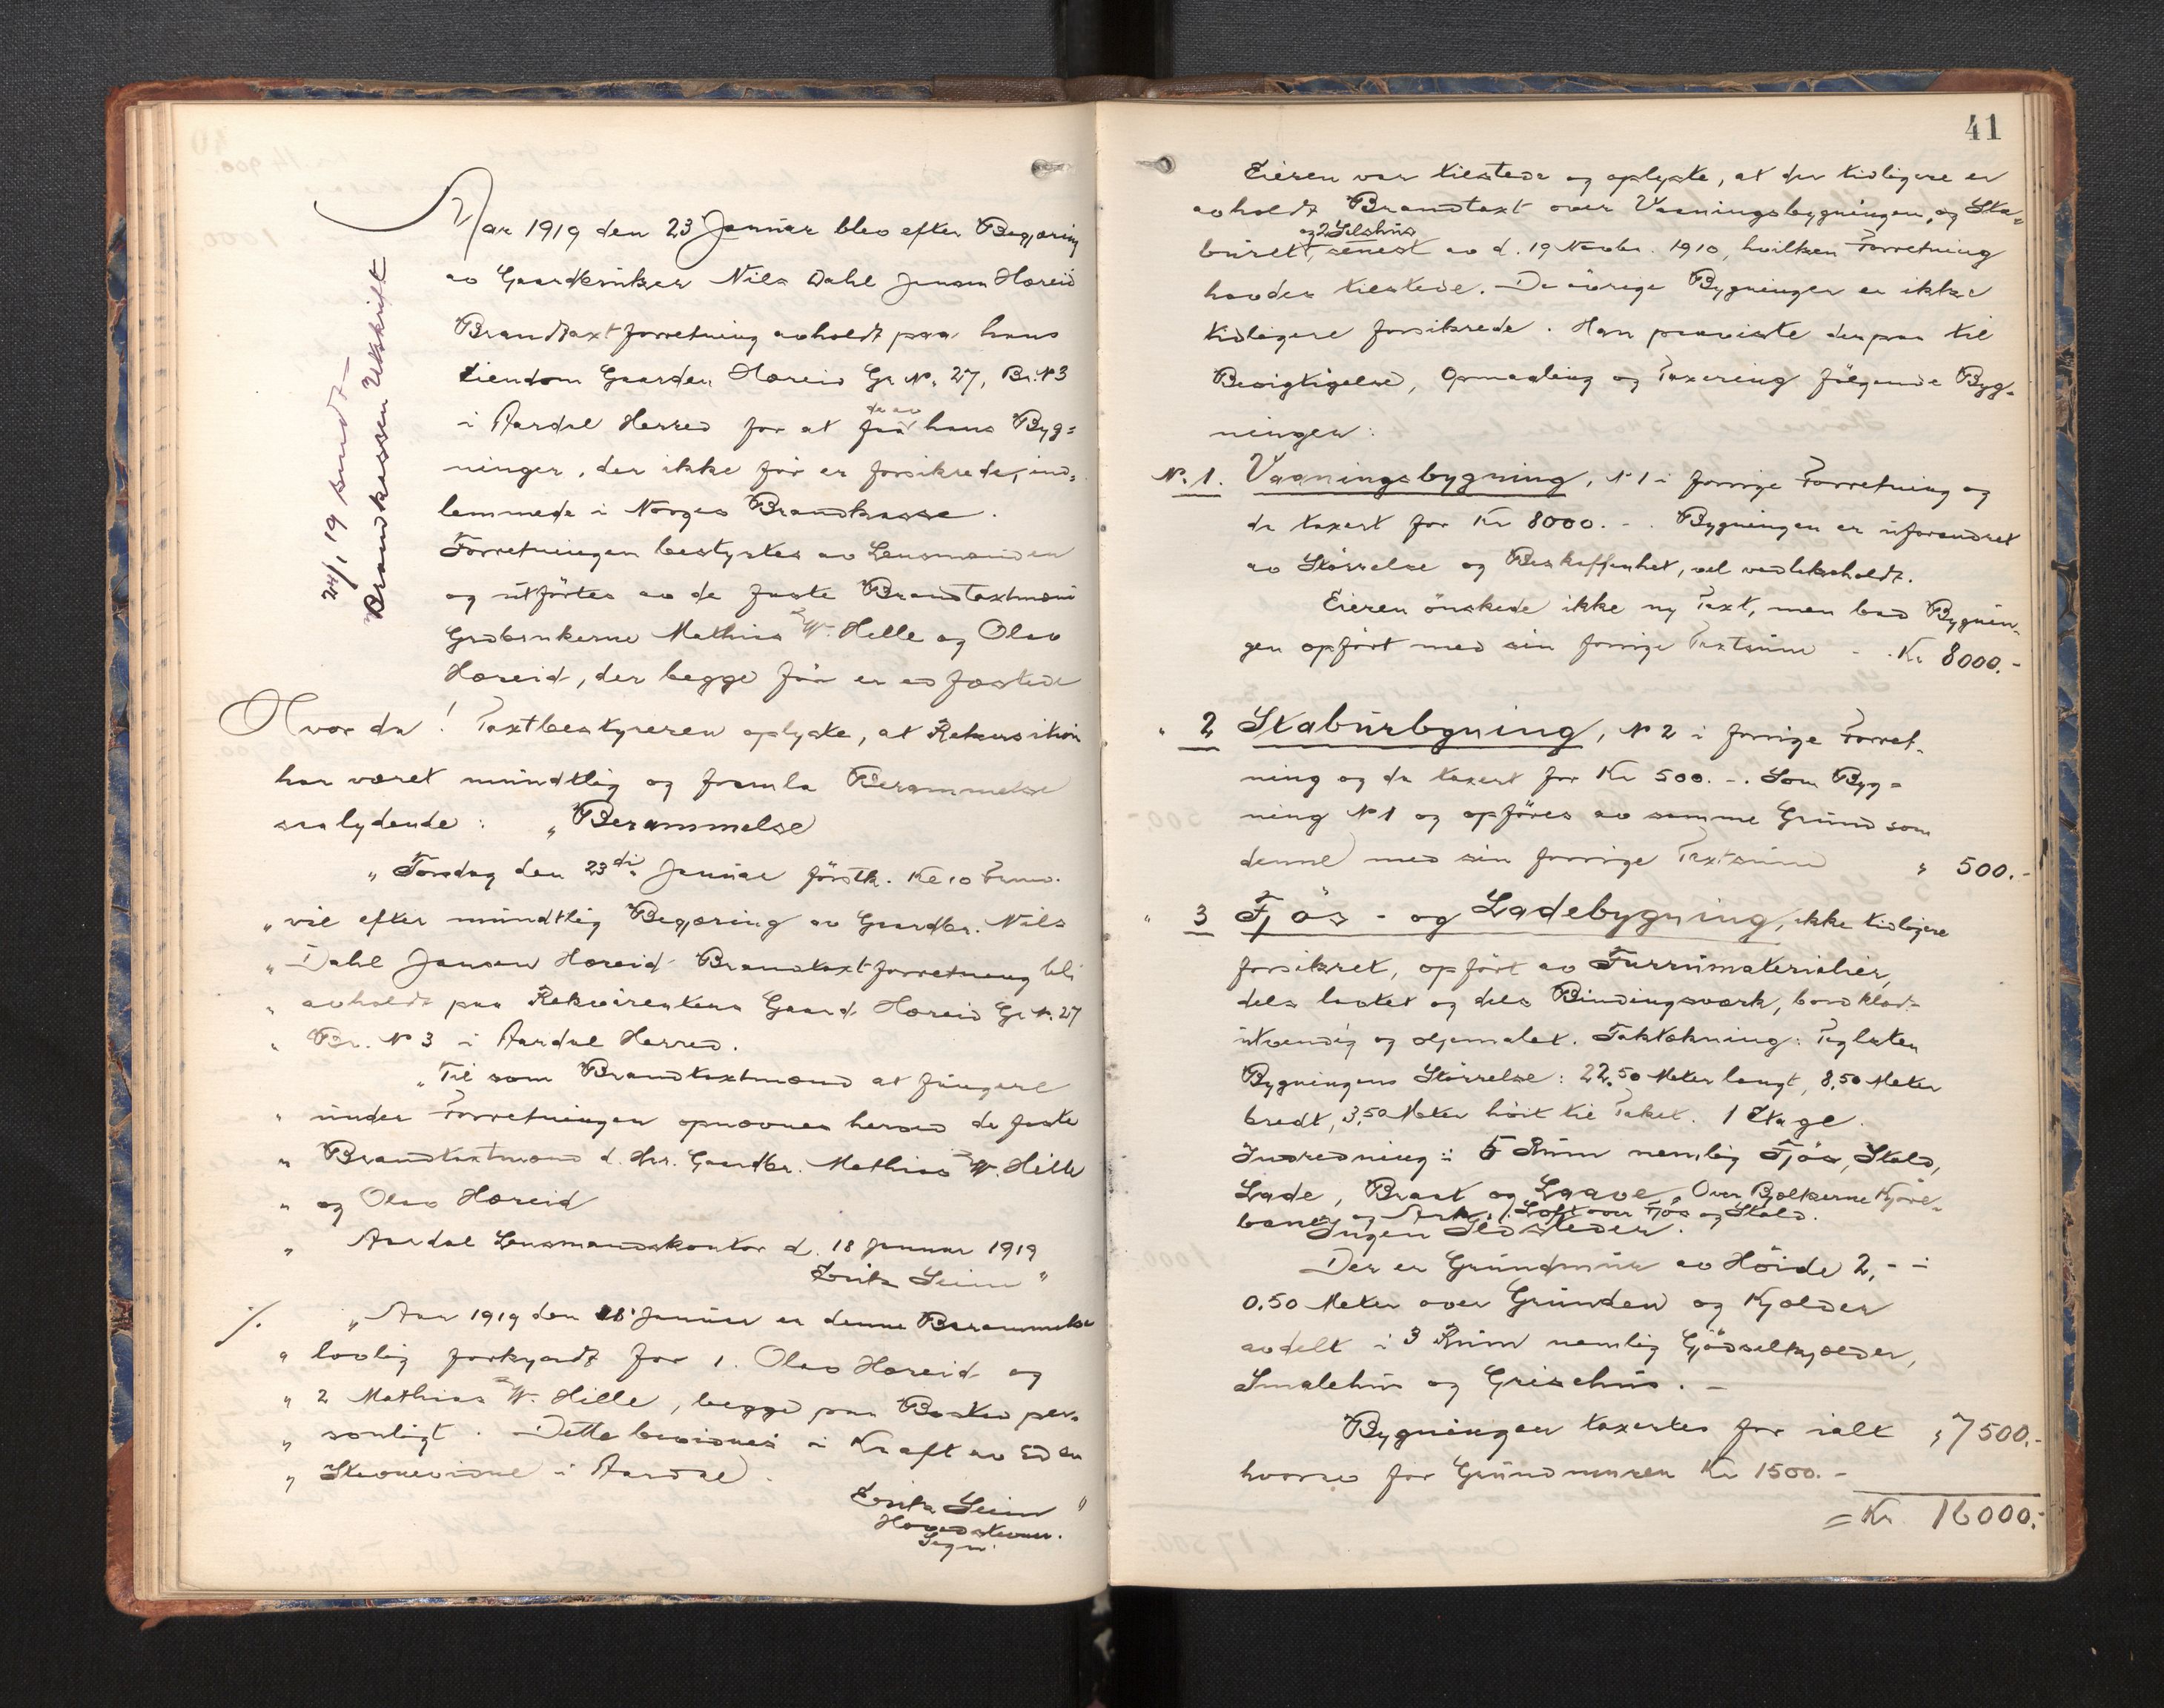 24/1 19 sendt
Brandkassen Utskrift
Aar 1919 den 23 Januar blev efter Begjæring
av Gaardbruker Nils Dahl Jensen Hæreid
Brandtaxtforretning avholdt paa hans
Eiendom Gaarden Hæreid Gr. Nr. 27, Br. N 3
i Aardal Herred for at faa de av hans Byg=
ninger, der ikke før er forsikrede, ind=
lemmede i Norges Brandkasse.
Forretningen bestyrtes av Lensmanden
og utførtes av de faste Brandtaxtmænd
Grdbrukerne Mathias W. Helle og Olav
Hæreid, der begge før er edfæstede
Hvorda! Taxtbestyreren oplyste, at Rekvisition
har været mundtlig og framla Berammelse
saalydende: „Berammelse
„Torsdag den 23de Januar førstk. Kl 10 Form.
„vil efter mundtlig Begjæring av Gaardbr. Nils
„Dahl Jensen Hæreid Brandtaxtforretning bli
„avholdt paa Rekvirentens Gaard Hæreid Gr. N. 27
„Br. N 3 i Aardal Herred.
„Til som Brandtaxtmænd at fungere
„under Forretningen opnævnes herved de faste
„Brandtaxtmænd d. Hr. Gaardbr. Mathias W. Hille
„og Olav Hæreid
„Aardal Lensmandskontor d. 18 Januar 1919
Eirik Seim"
./. „Aar 1919 den 18 Januar er denne Berammelse
„lovlig forkyndt for 1. Olav Hæreid og
„2 Mathias W. Hille, begge paa Bosted per=
„sonligt. Dette bevidnes i Kraft av Ed en
„Stevnevidne i Aardal.
Eirik Seim "
Hovedstevnev.
Segn.
41
Eieren var tilstede og oplyste, at der tidligere er
avholdt Brandtaxt over Vaaningsbygningen, og Sta=
og 2 Selshus
buret, senest av d. 19 Novbr. 1910, hvilken Forretning
havdes tilstede. De øvrige Bygninger er ikke
tidligere forsikrede. Han paaviste derpaa til
Besigtigelse, Opmaaling og Taxering følgende Byg=
ninger:
N. 1. Vaaningsbygning, N 1 i forrige Forretning og
da taxert for Kr 8000.-. Bygningen er uforandret
av Størrelse og Beskaffenhet, vel vedlikeholdt.
Eieren ønskede ikke ny Taxt, men bad Bygnin=
gen opført med sin forrige Taxtsum - . Kr 8000.-
" 2 Staburbygning, N 2 i forrige Forret=
ning og da taxert for Kr 500.-. Som Byg=
ning N 1 og opføres av samme Grund som
denne med sin forrige Taxtsum " 500.-
" 3 Fjøs- og Ladebygning, ikke tidligere
forsikret, opført av Furrumaterialier,
dels lavtet og dels Bindingsverk, bordklædt
utvendig og oljemalet. Taktækning: Teglsten
Bygningens Størrelse: 22,50 Meter langt, 8,50 Meter
bredt, 3,50 Meter høit til Taket. 1 Etage.
Indredning: 5 Rum nemlig Fjøs, Stald,
Lade, Brast og Laave. Over Bjelkerne Kjøre=
bane og Ark. 1 Loft over Fjøs og Stald.
Ingen Ildsteder.
Der er Grundmur av Høide 2,- -
0.50 Meter over Grunden og Kjælder
avdelt i 3 Rum nemlig Gjødselkjælder,
Smalehus og Grisehus. -
Bygningen taxertes for ialt " 7500.-
hvorav for Grundmuren Kr 1500.-
= Kr 16000.-